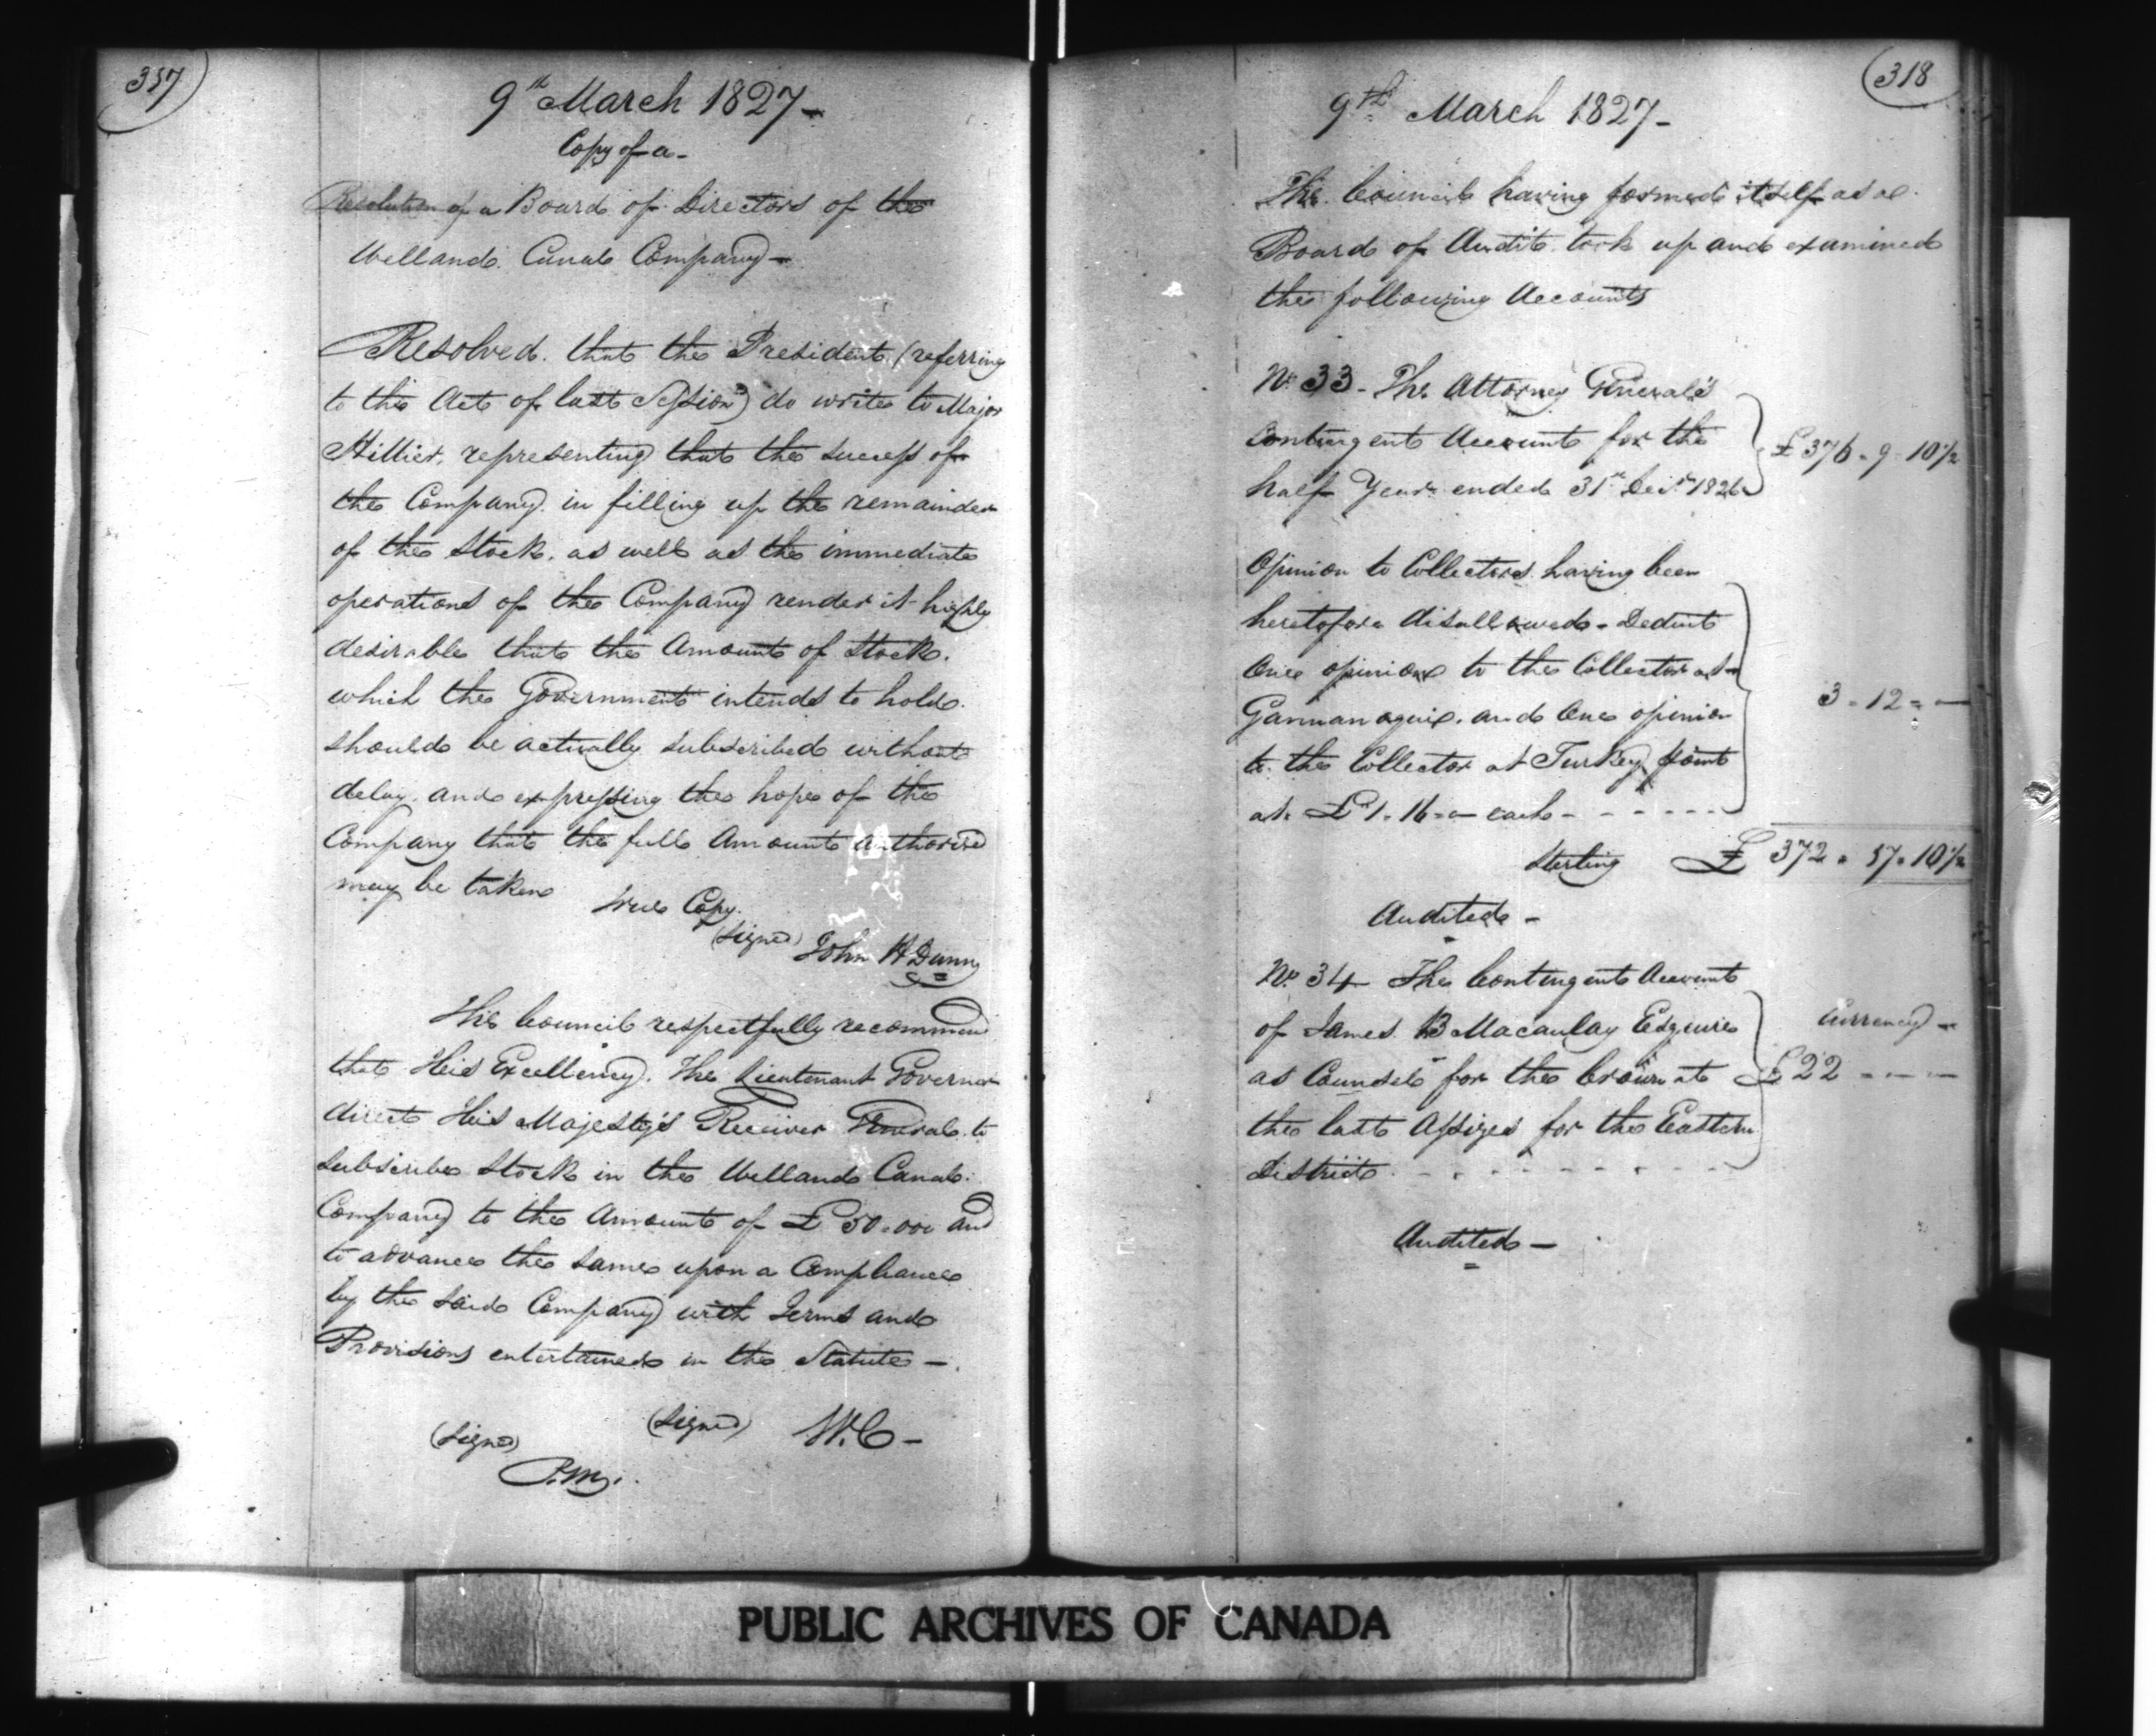 317
9th March 1827 -
Copy of a -
Resolution of a Board of Directors of the
Welland Canal Company -
Resolved that the President (referring
to the Act of last Session) do write to Major
Hillier, representing that the success of
the Company in filling up the remainder
of the Stock, as well as the immediate
operations of the Company render it highly
desirable that the Amount of Stock
which the Government intends to hold
should be actually subscribed without
delay, and expressing the hope of the
Company that the full Amount authorized
may be taken
True Copy
(Signed) John H Dunn
The Council respectfully recommend
that His Excellency The Lieutenant Governor
direct His Majesty's Receiver General to
subscribe Stock in the Welland Canal
Company to the Amount of £50.000 and
to advance the same upon a Compliance
by the said Company with Terms and
Provisions entertained in the Statute -
(Signed) W.C -
(Signed)
P.M.
318
9th March 1827 -
The Council having formed itself as a
Board of Audit took up and examined
the following Accounts
No 33 - The Attorney General's
Contingent Account for the
half Year ended 31st Decr 1826
£376 - 9 - 10½
Opinion to Collectors having been
heretofore disallowed - Deduct
One opinion to the Collector at
Gannanoquie and One opinion
to the Collector at Turkey Point
at £1 - 16 = - each - - - - - -
3 - 12 = -
Sterling £ 372 - 17 - 10½
Audited -
No 34 - The Contingent Account
of James B Macaulay Esquire
as Counsel for the Crown at
the last Assizes for the Eastern
District
Currency -
£22 - - -
Audited -
PUBLIC ARCHIVES OF CANADA